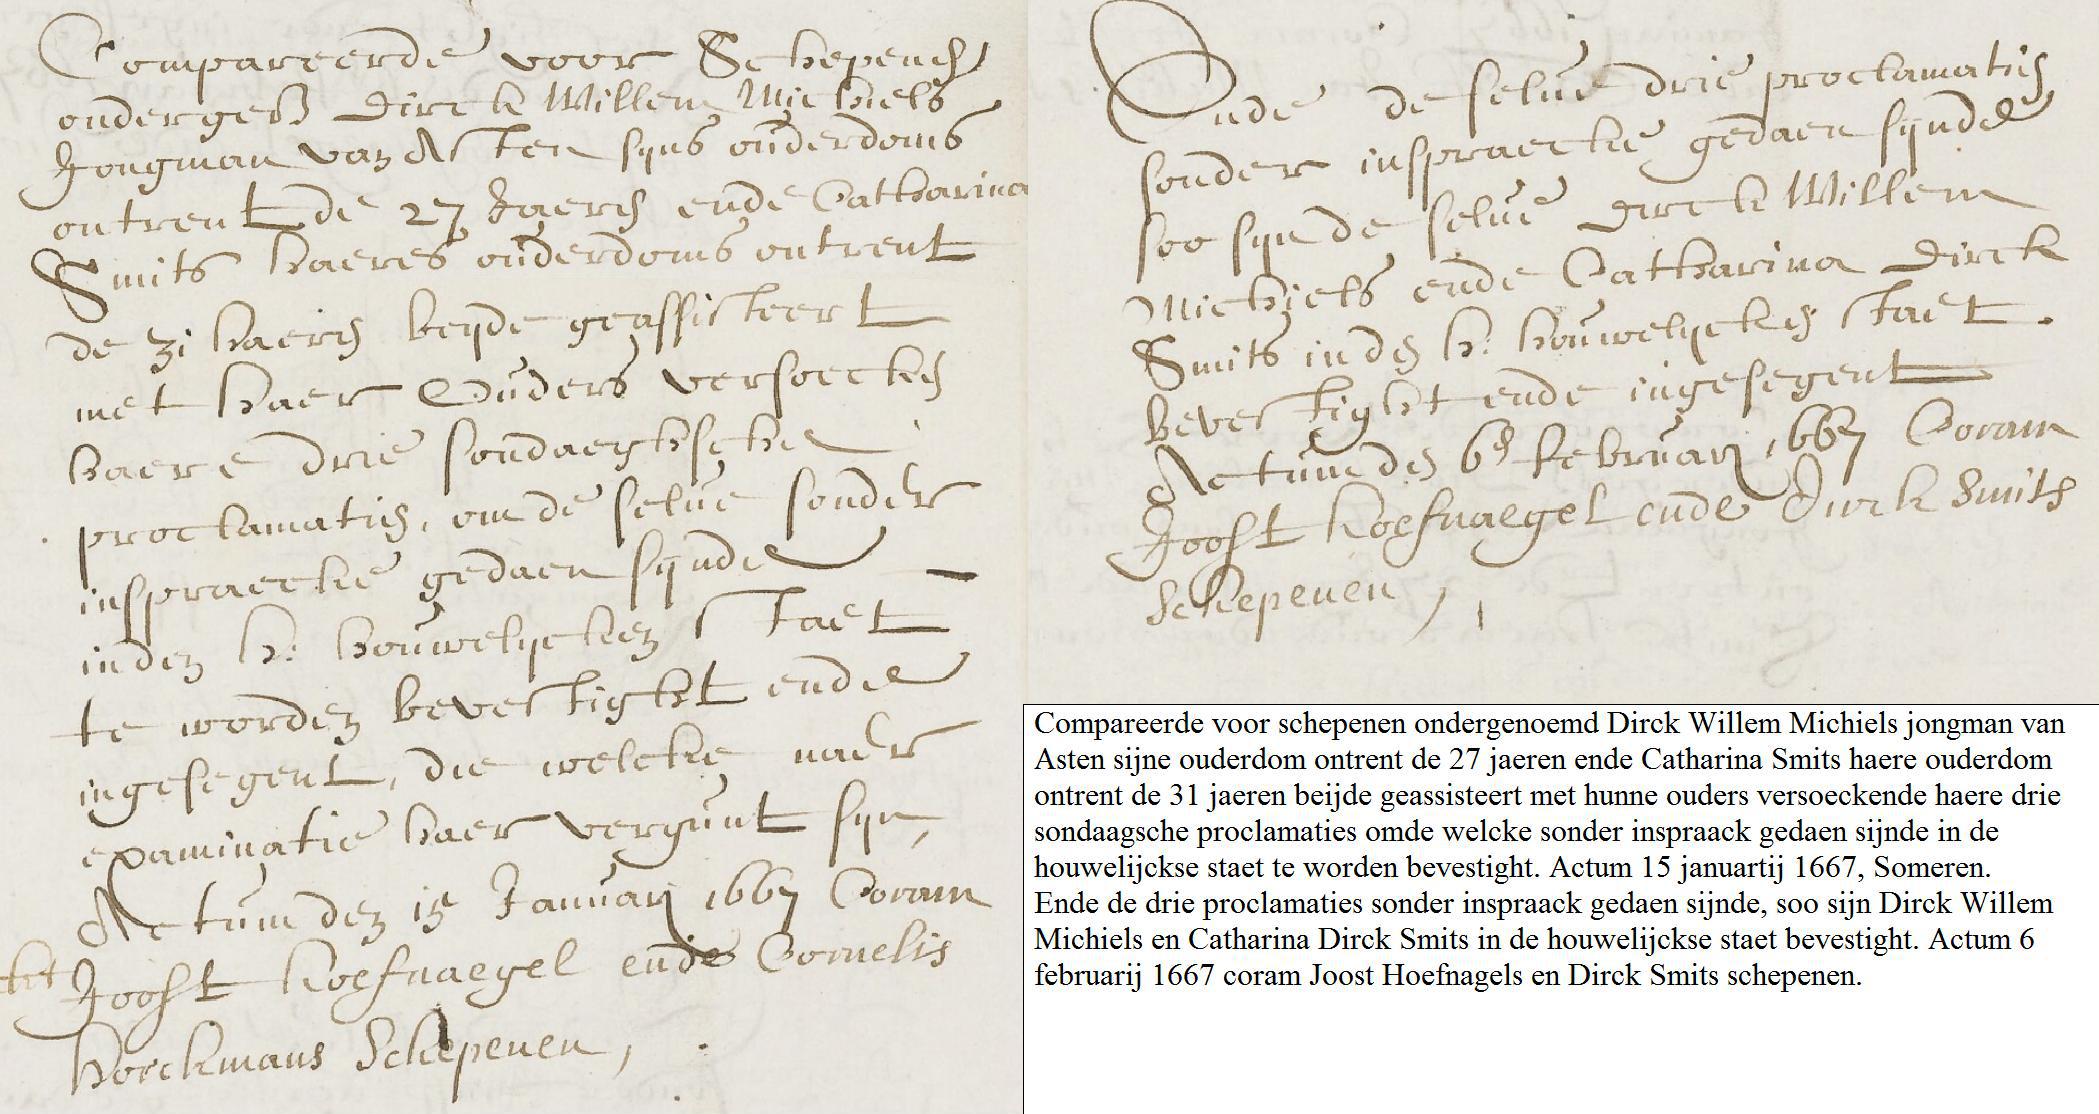 Compareerde voor Schepen
onderges Dirck Willem Michiels
Jongman van Asten sijns ouderdoms
ontrent de 27 Jaeren ende Catharina
Smits haeres ouderdoms ontrent
de 31 Jaeren beijde geassisteert
met haer Ouders versoecken
haere drie sondaeghsche
proclamatien, om de selve sonder
inspraecke gedaen sijnde
inden h. houwelijcken staet
te worden bevestight ende
ingesegent, die welcke naer
examinatie haer vergunt sijn,
Actum den 15 Januarij 1667 Coram
Joost hoefnaegel ende Cornelis
Schepenen,
Ende de selve drie proclamatien
sonder inspraecke gedaen sijnde
soo sijn de selve Dirck Willem
Michiels ende Catharina Dirck
Smits inden h. houwelijcken staet
bevestight ende ingesegent
Actum den 6en februarij 1667 Coram
Joost hoefnaegel ende Dirck Smits
Schepenen
Compareerde voor schepenen ondergenoemd Dirck Willem Michiels jongman van
Asten sijne ouderdom ontrent de 27 jaeren ende Catharina Smits haere ouderdom
ontrent de 31 jaeren beijde geassisteert met hunne ouders versoeckende haere drie
sondaagsche proclamaties omde welcke sonder inspraack gedaen sijnde in de
houwelijckse staet te worden bevestight. Actum 15 januartij 1667, Someren.
Ende de drie proclamaties sonder inspraack gedaen sijnde, soo sijn Dirck Willem
Michiels en Catharina Dirck Smits in de houwelijckse staet bevestight. Actum 6
februarij 1667 coram Joost Hoefnagels en Dirck Smits schepenen.